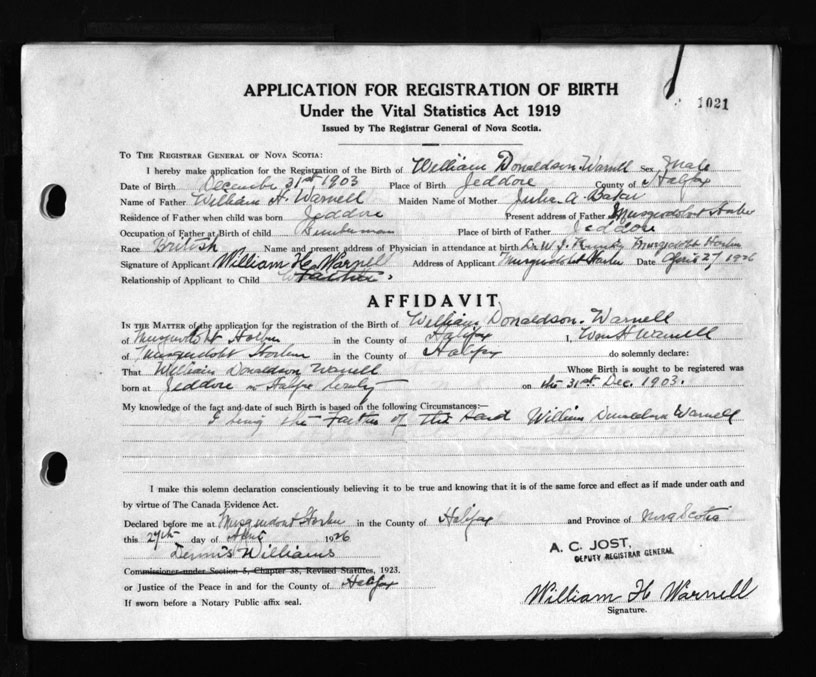 1021
APPLICATION FOR REGISTRATION OF BIRTH
Under the Vital Statistics Act 1919
Issued by The Registrar General of Nova Scotia.
TO THE REGISTRAR GENERAL OF NOVA SCOTIA:
I hereby make application for the Registration of the Birth of William Donaldson Warnell Sex Male
Date of Birth December 31st 1903 Place of Birth Jeddore County of Halifax
Name of Father William H. Warnell Maiden Name of Mother Julia A Baker
Residence of Father when child was born Jeddore Present address of Father Musquodoboit Harbor
Occupation of Father at Birth of child Lumberman Place of birth of Father Jeddore
Race British Name and present address of Physician in attendance at birth Dr. W. J. Musquodoboit Harbor
Signature of Applicant William H. Warnell Address of Applicant Musquodoboit Harbor Date April 27 1926
Relationship of Applicant to Child Father.
AFFIDAVIT
IN THE MATTER of the application for the registration of the Birth of William Donaldson Warnell
of Musquodoboit Harbor in the County of Halifax I, Wm H Warnell
of Musquodoboit Harbor in the County of Halifax do solemnly declare:
That William Donaldson Warnell Whose Birth is sought to be registered was
born at Jeddore in Halifax County on the 31st. Dec. 1903.
My knowledge of the fact and date of such Birth is based on the following Circumstances:—
I being the Father of the said William Donaldson Warnell
I make this solemn declaration conscientiously believing it to be true and knowing that it is of the same force and effect as if made under oath and
by virtue of The Canada Evidence Act.
Declared before me at Musquodoboit Harbor in the County of Halifax and Province of Nova Scotia
this 27th day of April 1926
Dennis Williams
Commissioner under Section 5, Chapter 38, Revised Statutes, 1923.
or Justice of the Peace in and for the County of Halifax
If sworn before a Notary Public affix seal.
A. C. JOST,
DEPUTY REGISTRAR GENERAL
William H Warnell
Signature.